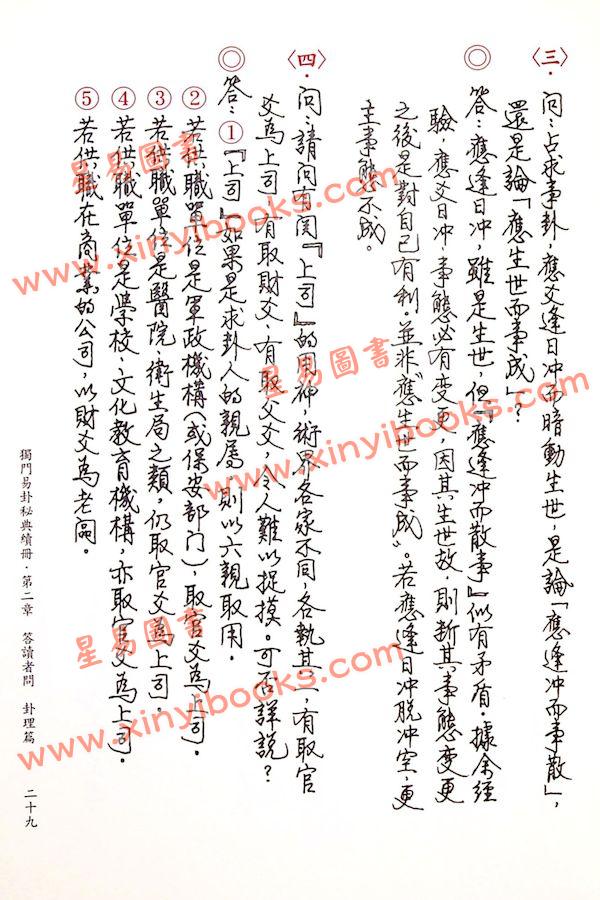 〈三〉．問：占求事卦，應爻逢日冲而暗動生世，是論「應逢冲而事散」，
還是論「應生世而事成」？
◎答：應逢日冲，雖是生世，但『應逢冲而散事』似有矛盾．據余經
驗，應爻日冲，事態必有變更，因其生世故，則斷其事態變更
之後是對自己有利。並非“應生世而事成”。若應逢日冲脱冲空，更
主事態不成。
〈四〉．問：請問有関『上司』的用神，術界各家不同，各執其一，有取官
爻為上司，有取財爻、有取父爻，令人難以捉摸。可否詳説？
◎答：①『上司』如果是求卦人的親属，則以六親取用．
②若供職單位是軍政機構(或保安部门)，取官爻為上司．
③若供職單位是醫院、衛生局之類，仍取官爻為上司．
④若供職單位是學校、文化教育機構，亦取官爻為上司．
⑤若供職在商業的公司，以財爻為老闆。
獨門易卦秘典續冊．第二章 答讀者問 卦理篇 二十九
星易圖書
www.xinyibooks.com
星易圖書
www.xinyibooks.com
星易圖書
www.xinyibooks.com